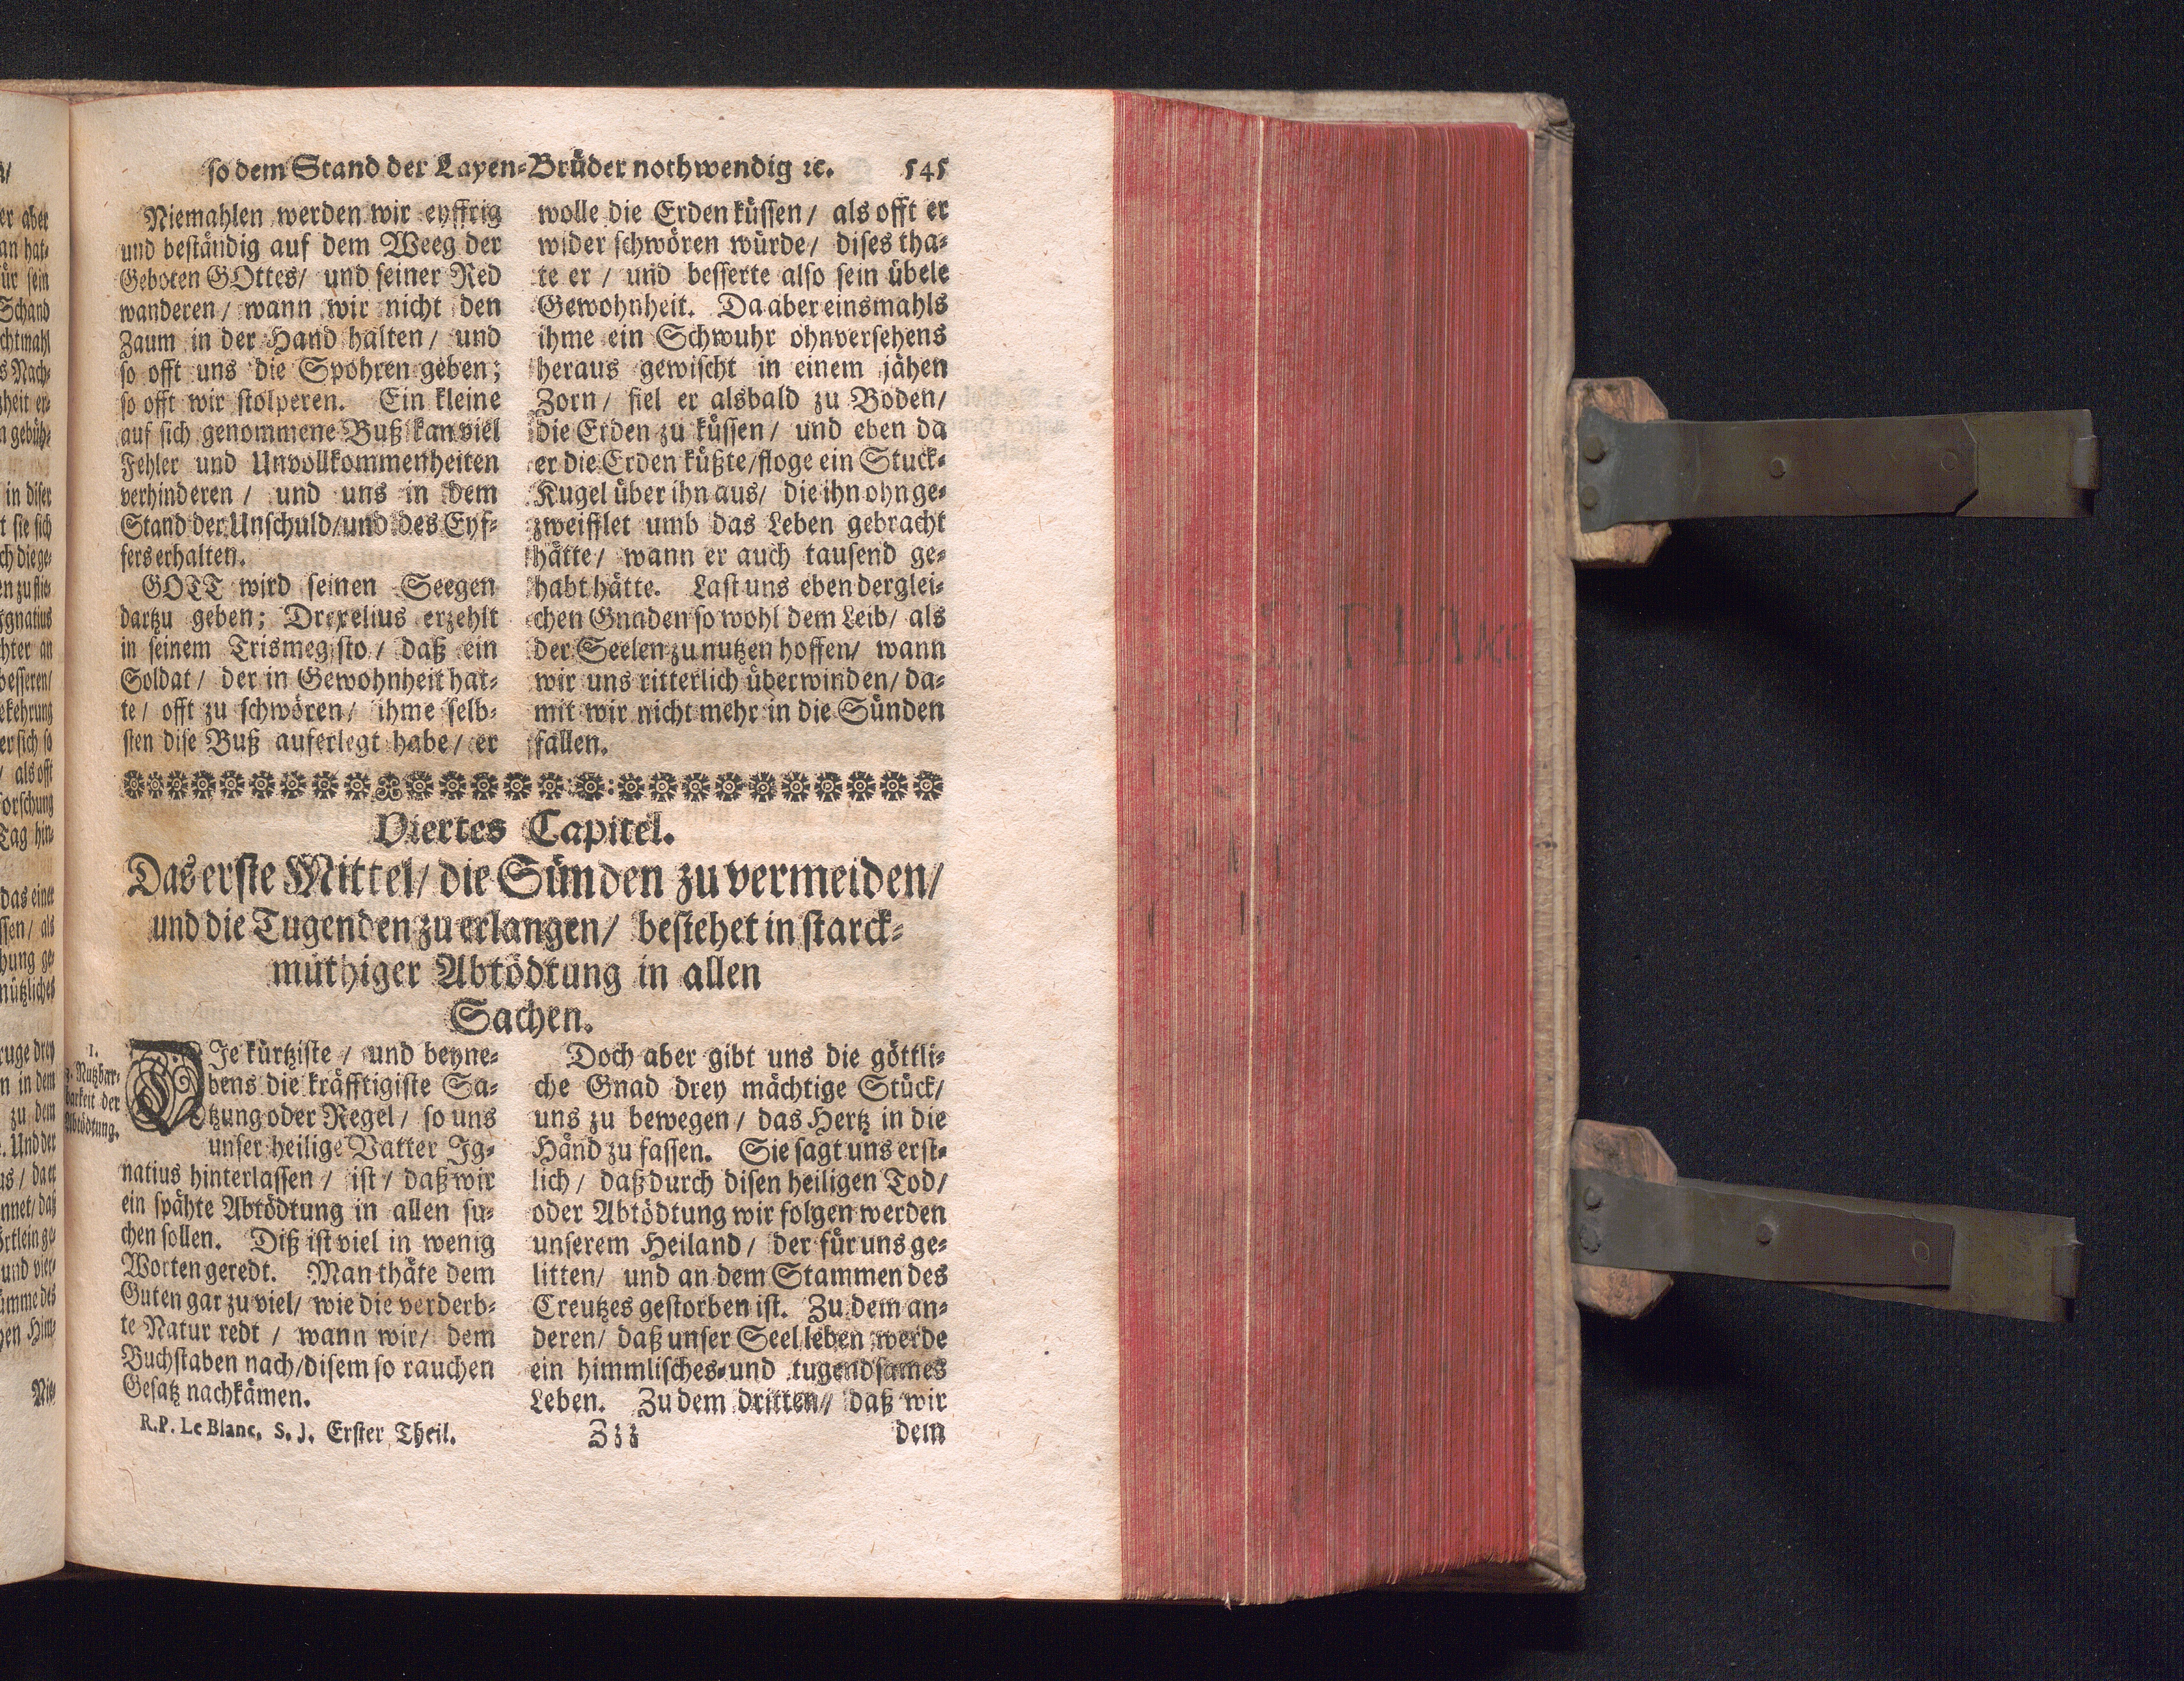 so dem Stand der Layen-Brüder nothwendig ꝛc. 545
Niemahlen werden wir eyffrig
und beständig auf dem Weeg der
Geboten GOttes/ und seiner Red
wanderen/ wann wir nicht den
Zaum in der Hand halten/ und
so offt uns die Spohren geben;
so offt wir stolperen. Ein kleine
auf sich genommene Buß kan viel
Fehler und Unvollkommenheiten
verhinderen/ und uns in dem
Stand der Unschuld/und des Eyf-
fers erhalten.
GOTT wird seinen Seegen
dartzu geben; Drexelius erzehlt
in seinem Trismegisto/ daß ein
Soldat/ der in Gewohnheit hat-
te/ offt zu schwören/ ihme selb-
sten dise Buß auferlegt habe/ er
wolle die Erden küssen/ als offt er
wider schwören würde/ dises tha-
te er/ und besserte also sein übele
Gewohnheit. Da aber einsmahls
ihme ein Schwuhr ohnversehens
heraus gewischt in einem jähen
Zorn/ fiel er alsbald zu Boden/
die Erden zu küssen/ und eben da
er die Erden küßte/floge ein Stuck-
Kugel über ihn aus/ die ihn ohnge-
zweifflet umb das Leben gebracht
hätte/ wann er auch tausend ge-
habt hätte. Last uns eben derglei-
chen Gnaden so wohl dem Leib/ als
der Seelen zu nutzen hoffen/ wann
wir uns ritterlich überwinden/ da-
mit wir nicht mehr in die Sünden
fallen.
Viertes Capitel.
Das erste Mittel/ die Sünden zu vermeiden/
und die Tugenden zu erlangen/ bestehet in starck-
müthiger Abtödtung in allen
Sachen.
1.
z. Nutzbar-
barkeit der
Abtödtung.
DIe kürtziste/ und beyne-
bens die kräfftigiste Sa-
tzung oder Regel/ so uns
unser heilige Vatter Ig-
natius hinterlassen/ ist/ daß wir
ein spähte Abtödtung in allen su-
chen sollen. Diß ist viel in wenig
Worten geredt. Man thäte dem
Guten gar zu viel/ wie die verderb-
te Natur redt/ wann wir/ dem
Buchstaben nach/disem so rauchen
Gesatz nachkämen.
Doch aber gibt uns die göttli-
che Gnad drey mächtige Stück/
uns zu bewegen/ das Hertz in die
Händ zu fassen. Sie sagt uns erst-
lich/ daß durch disen heiligen Tod/
oder Abtödtung wir folgen werden
unserem Heiland/ der für uns ge-
litten/ und an dem Stammen des
Creutzes gestorben ist. Zu dem an-
deren/ daß unser Seel leben werde
ein himmlisches-und tugendsames
Leben. Zu dem dritten/ daß wir
R.P. Le Blanc, S. J. Erster Theil. Zzz dem